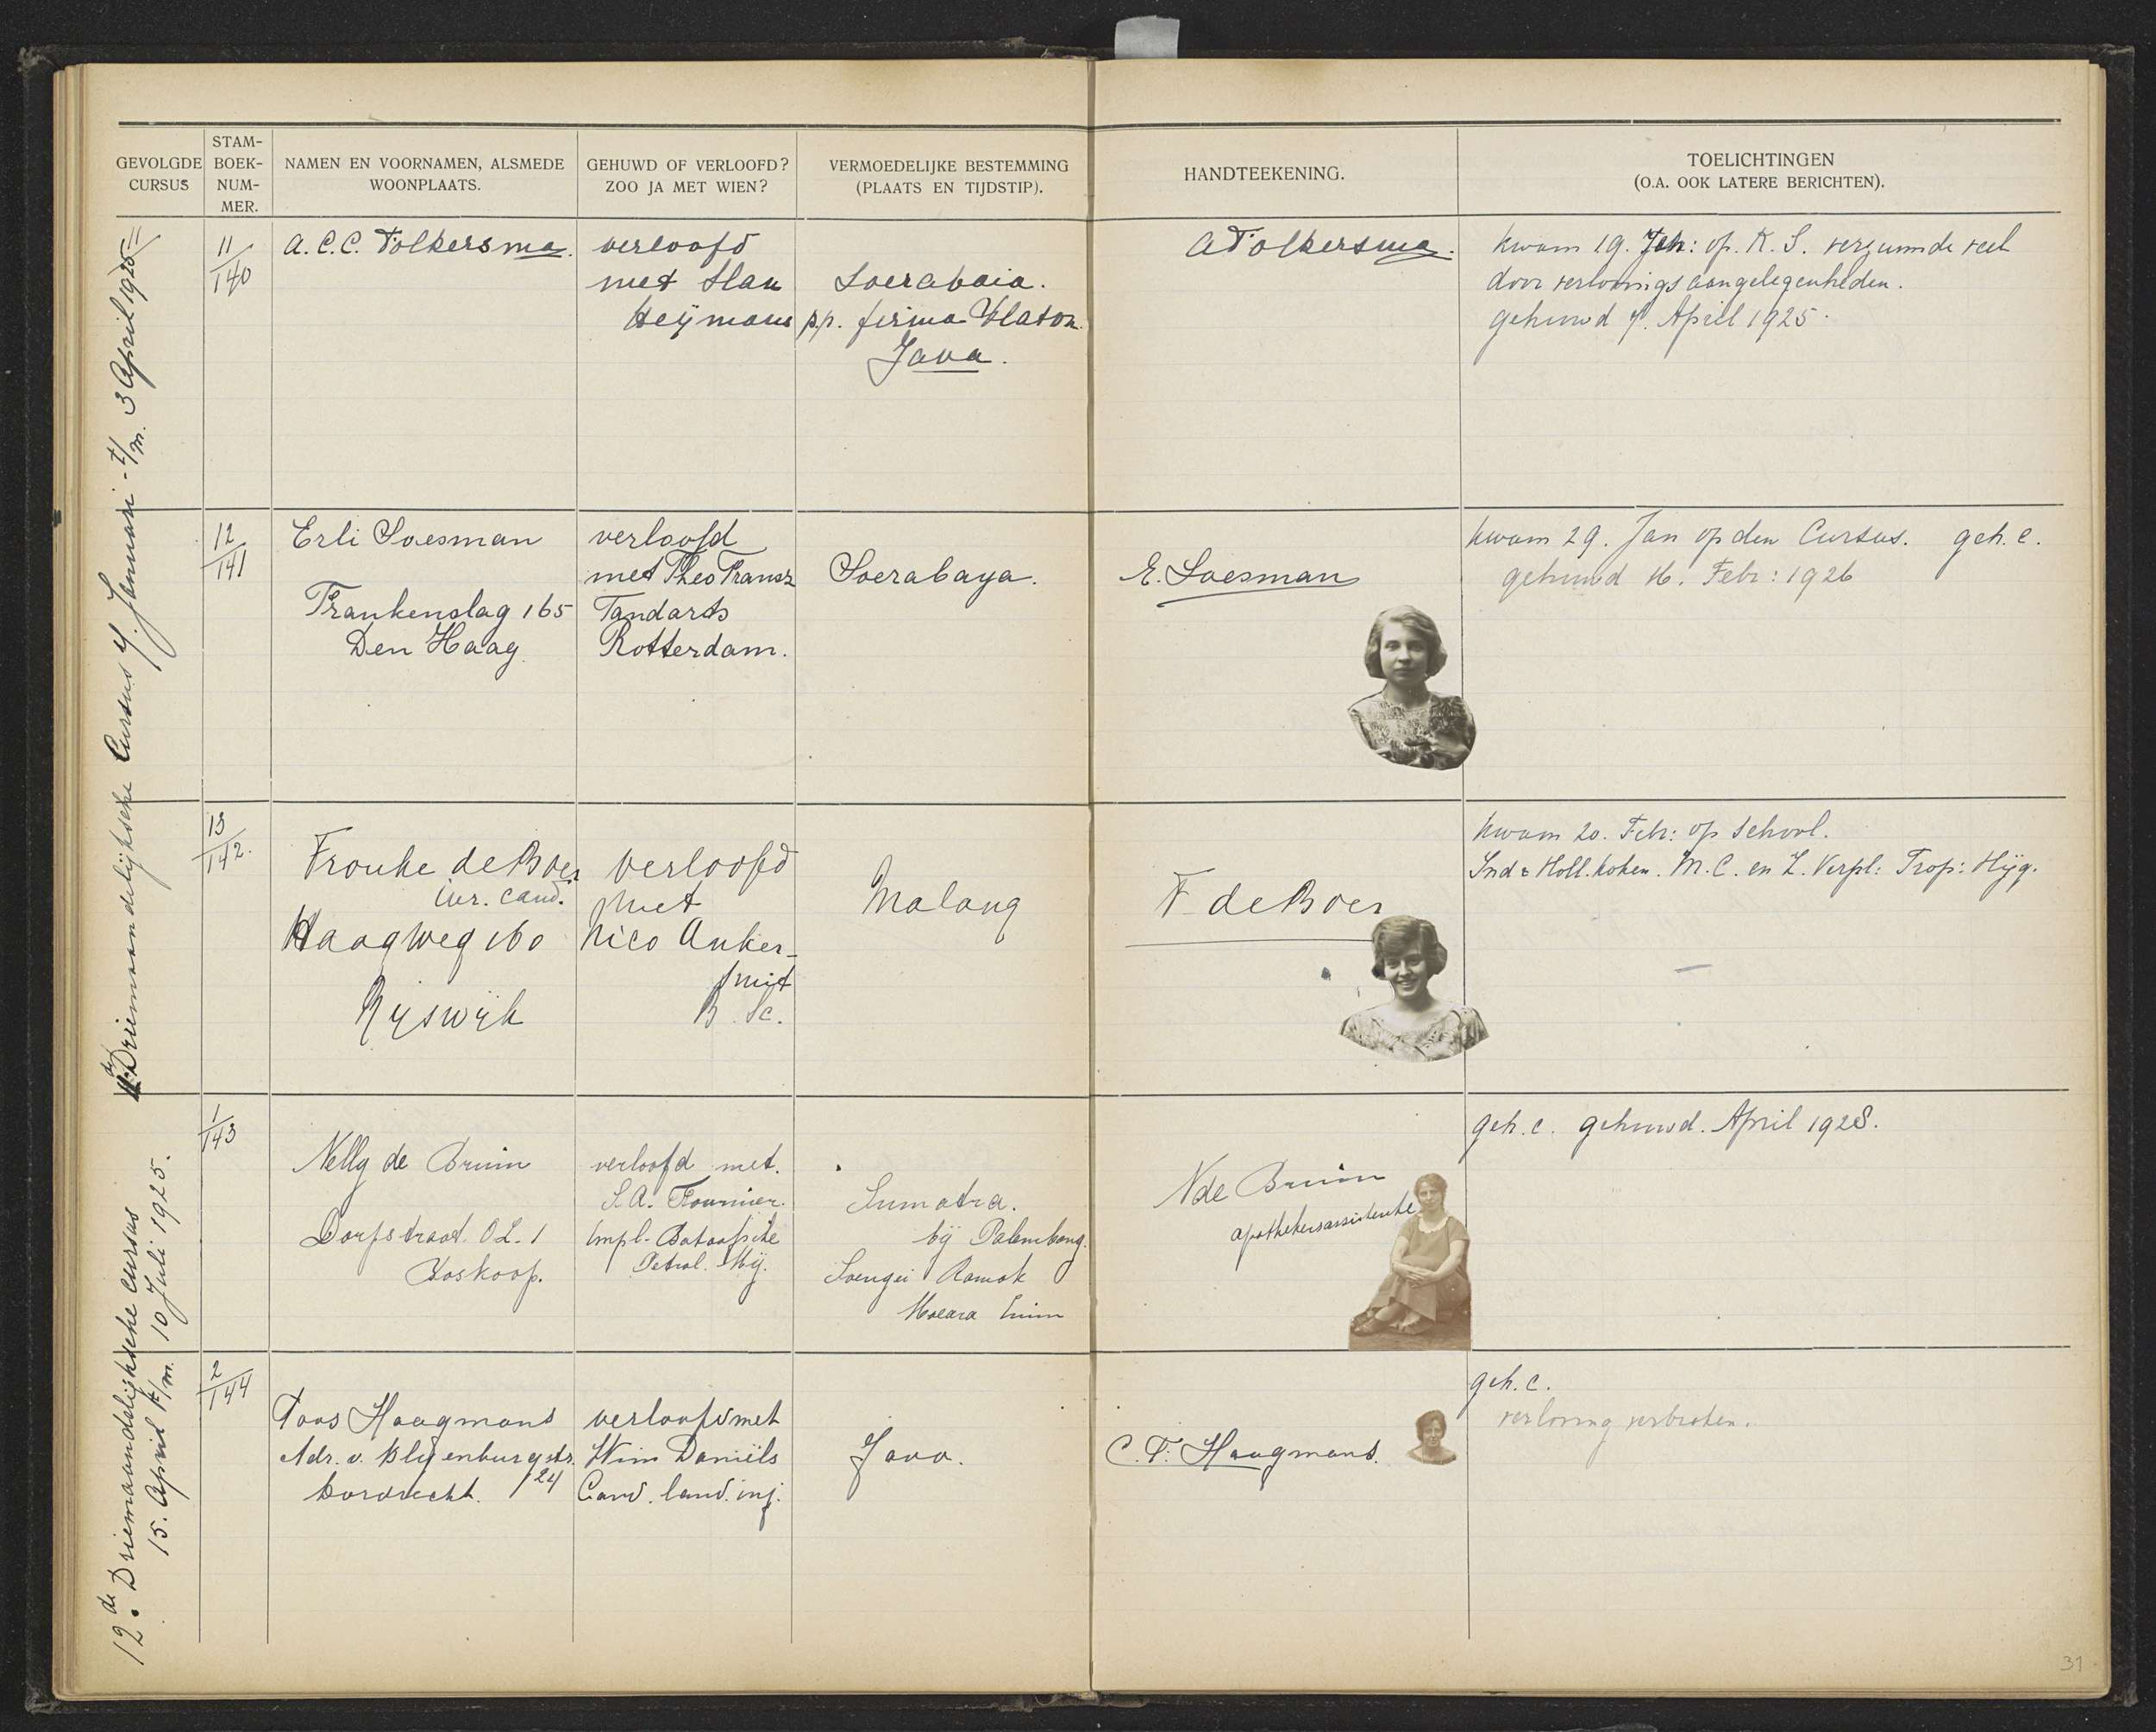 GEVOLGDE
CURSUS
STAM-
BOEK-
NUM-
MER.
NAMEN EN VOORNAMEN, ALSMEDE
WOONPLAATS.
GEHUWD OF VERLOOFD?
ZOO JA MET WIEN?
VERMOEDELIJKE BESTEMMING
(PLAATS EN TIJDSTIP).
HANDTEEKENING.
TOELICHTINGEN
(O.A. OOK LATERE BERICHTEN).
11de Driemaandelijksche Cursus 7. Januari - t/m. 3 April 1925
11/140
A.C.C. Folkersma.
verloofd
met Han
Heijmans
Soerabaia.
p/p. firma
Java.
AFolkersma.
kwam 19. Jan: op. K. S. verzuimde veel
door verlovings aangelegenheden.
gehuwd 7. April 1925.
12/141
Erli Soesman
Frankenslag 165
Den Haag
verloofd
met Theo Fransz
Tandarts
Rotterdam.
Soerabaya.
E. Soesman
kwam 29. Jan op den Cursus. geh. c.
gehuwd 16. Febr: 1926
13/142.
Frouke de Boer
iur. cand.
Haagweg 160
Rijswijk
verloofd
met
Nico Anker-
smit
B. Sc.
Malang
F de Boer
kwam 20. Febr: op school.
Ind & Holl. koken. M. C. en Z. Verpl: Trop: Hyg.
1/143
Nelly de Bruin
Dorpstraat O.L. 1
Boskoop.
verloofd met.
S.A. Fournier.
Empl. Bataafsche
Petrol. Mij.
Sumatra.
bij Palembang.
Soengei Ramok
Moeara Enim
N de Bruin
apothekersassistente
geh. c. gehuwd. April 1928.
12de Driemaandelijksche Cursus
15. April t/m. 10 Juli 1925.
2/144
Toos Haagmans
Adr. v. Blyenburgstr.
124
Dordrecht.
verloofd met
Wim Daniëls
Cand. land. inj.
Java.
C. F. Haagmans.
geh. c.
verloving verbroken.
31